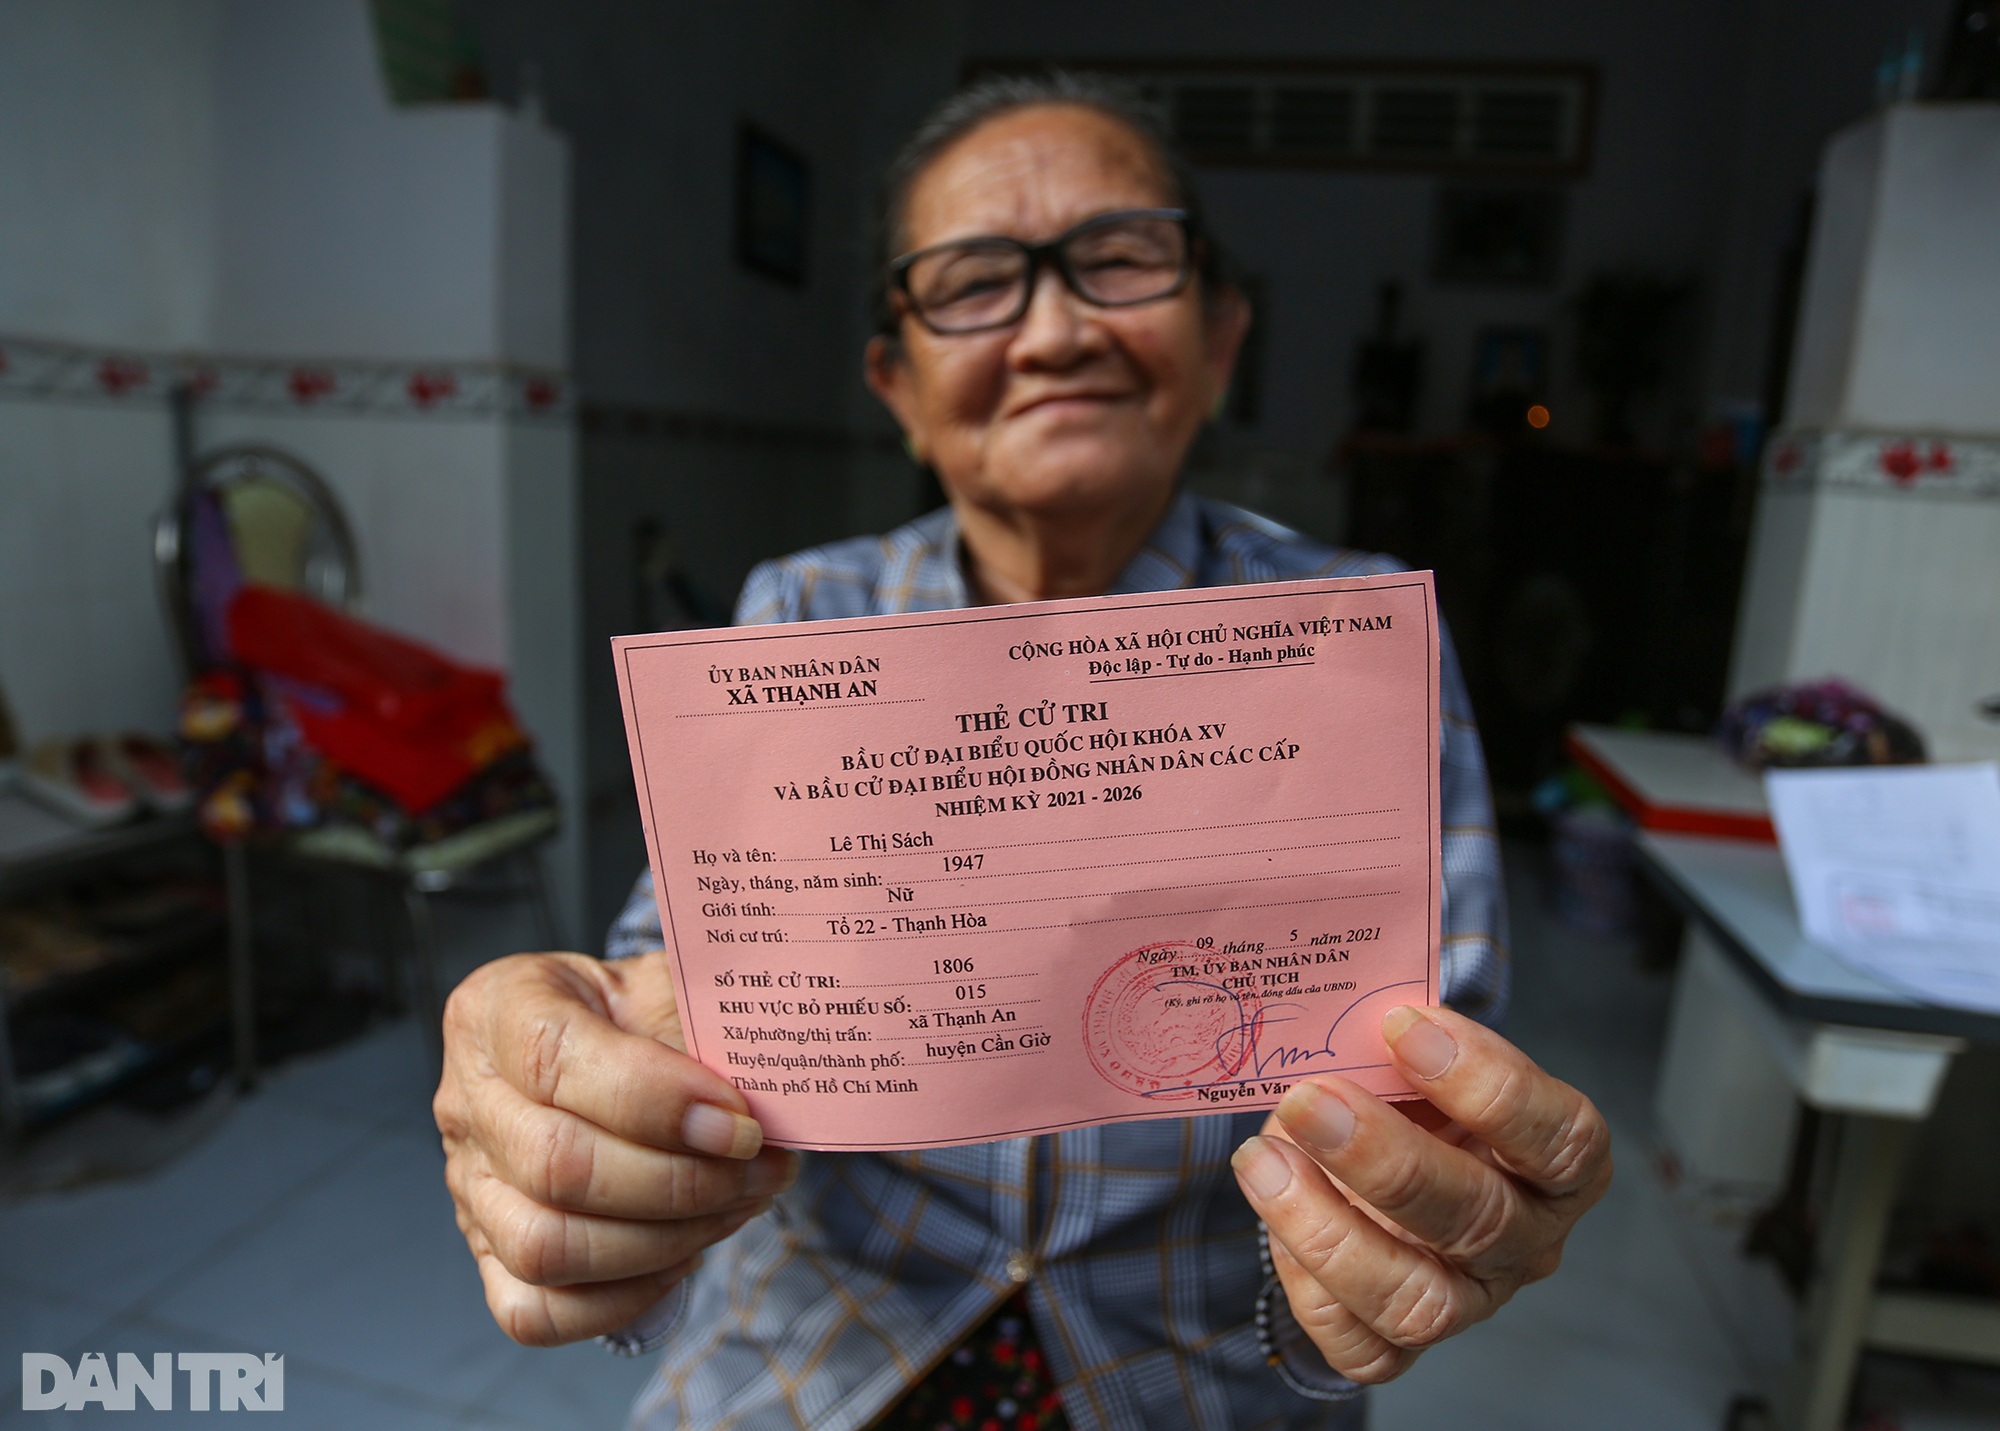 ỦY BAN NHÂN DÂN
XÃ THẠNH AN
CỘNG HÒA XÃ HỘI CHỦ NGHĨA VIỆT NAM
Độc lập - Tự do - Hạnh phúc
THẺ CỬ TRI
BẦU CỬ ĐẠI BIỂU QUỐC HỘI KHÓA XV
VÀ BẦU CỬ ĐẠI BIỂU HỘI ĐỒNG NHÂN DÂN CÁC CẤP
NHIỆM KỲ 2021 - 2026
Họ và tên: Lê Thị Sách
Ngày, tháng, năm sinh: 1947
Giới tính: Nữ
Nơi cư trú: Tổ 22 - Thạnh Hòa
SỐ THẺ CỬ TRI: 1806
KHU VỰC BỎ PHIẾU SỐ: 015
Xã/phường/thị trấn: xã Thạnh An
Huyện/quận/thành phố: huyện Cần Giờ
Thành phố Hồ Chí Minh
Ngày 09 tháng 5 năm 2021
TM. ỦY BAN NHÂN DÂN
CHỦ TỊCH
(Ký, ghi rõ họ và tên, đóng dấu của UBND)
Nguyễn Văn
DÂN TRÍ